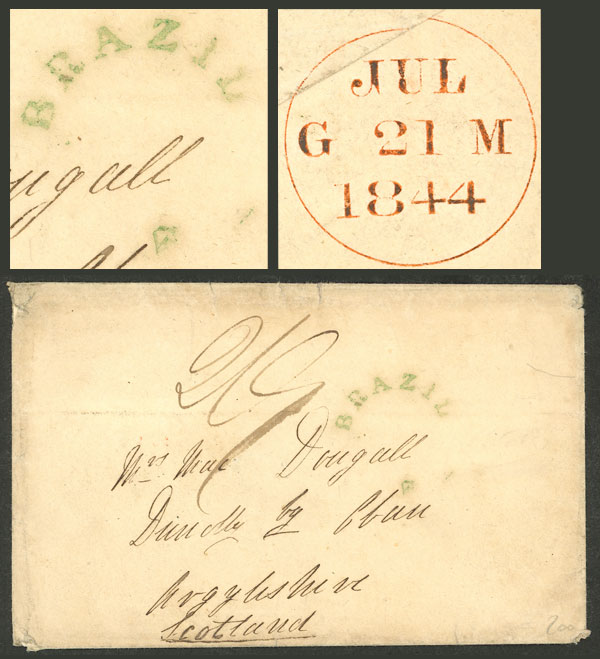 BRAZIL
ugall
B
JUL
G 21 M
1844
2/9
BRAZIL
Mrs Mac Dougall
B
Dunolly by Oban
Argyleshire
Scotland
200